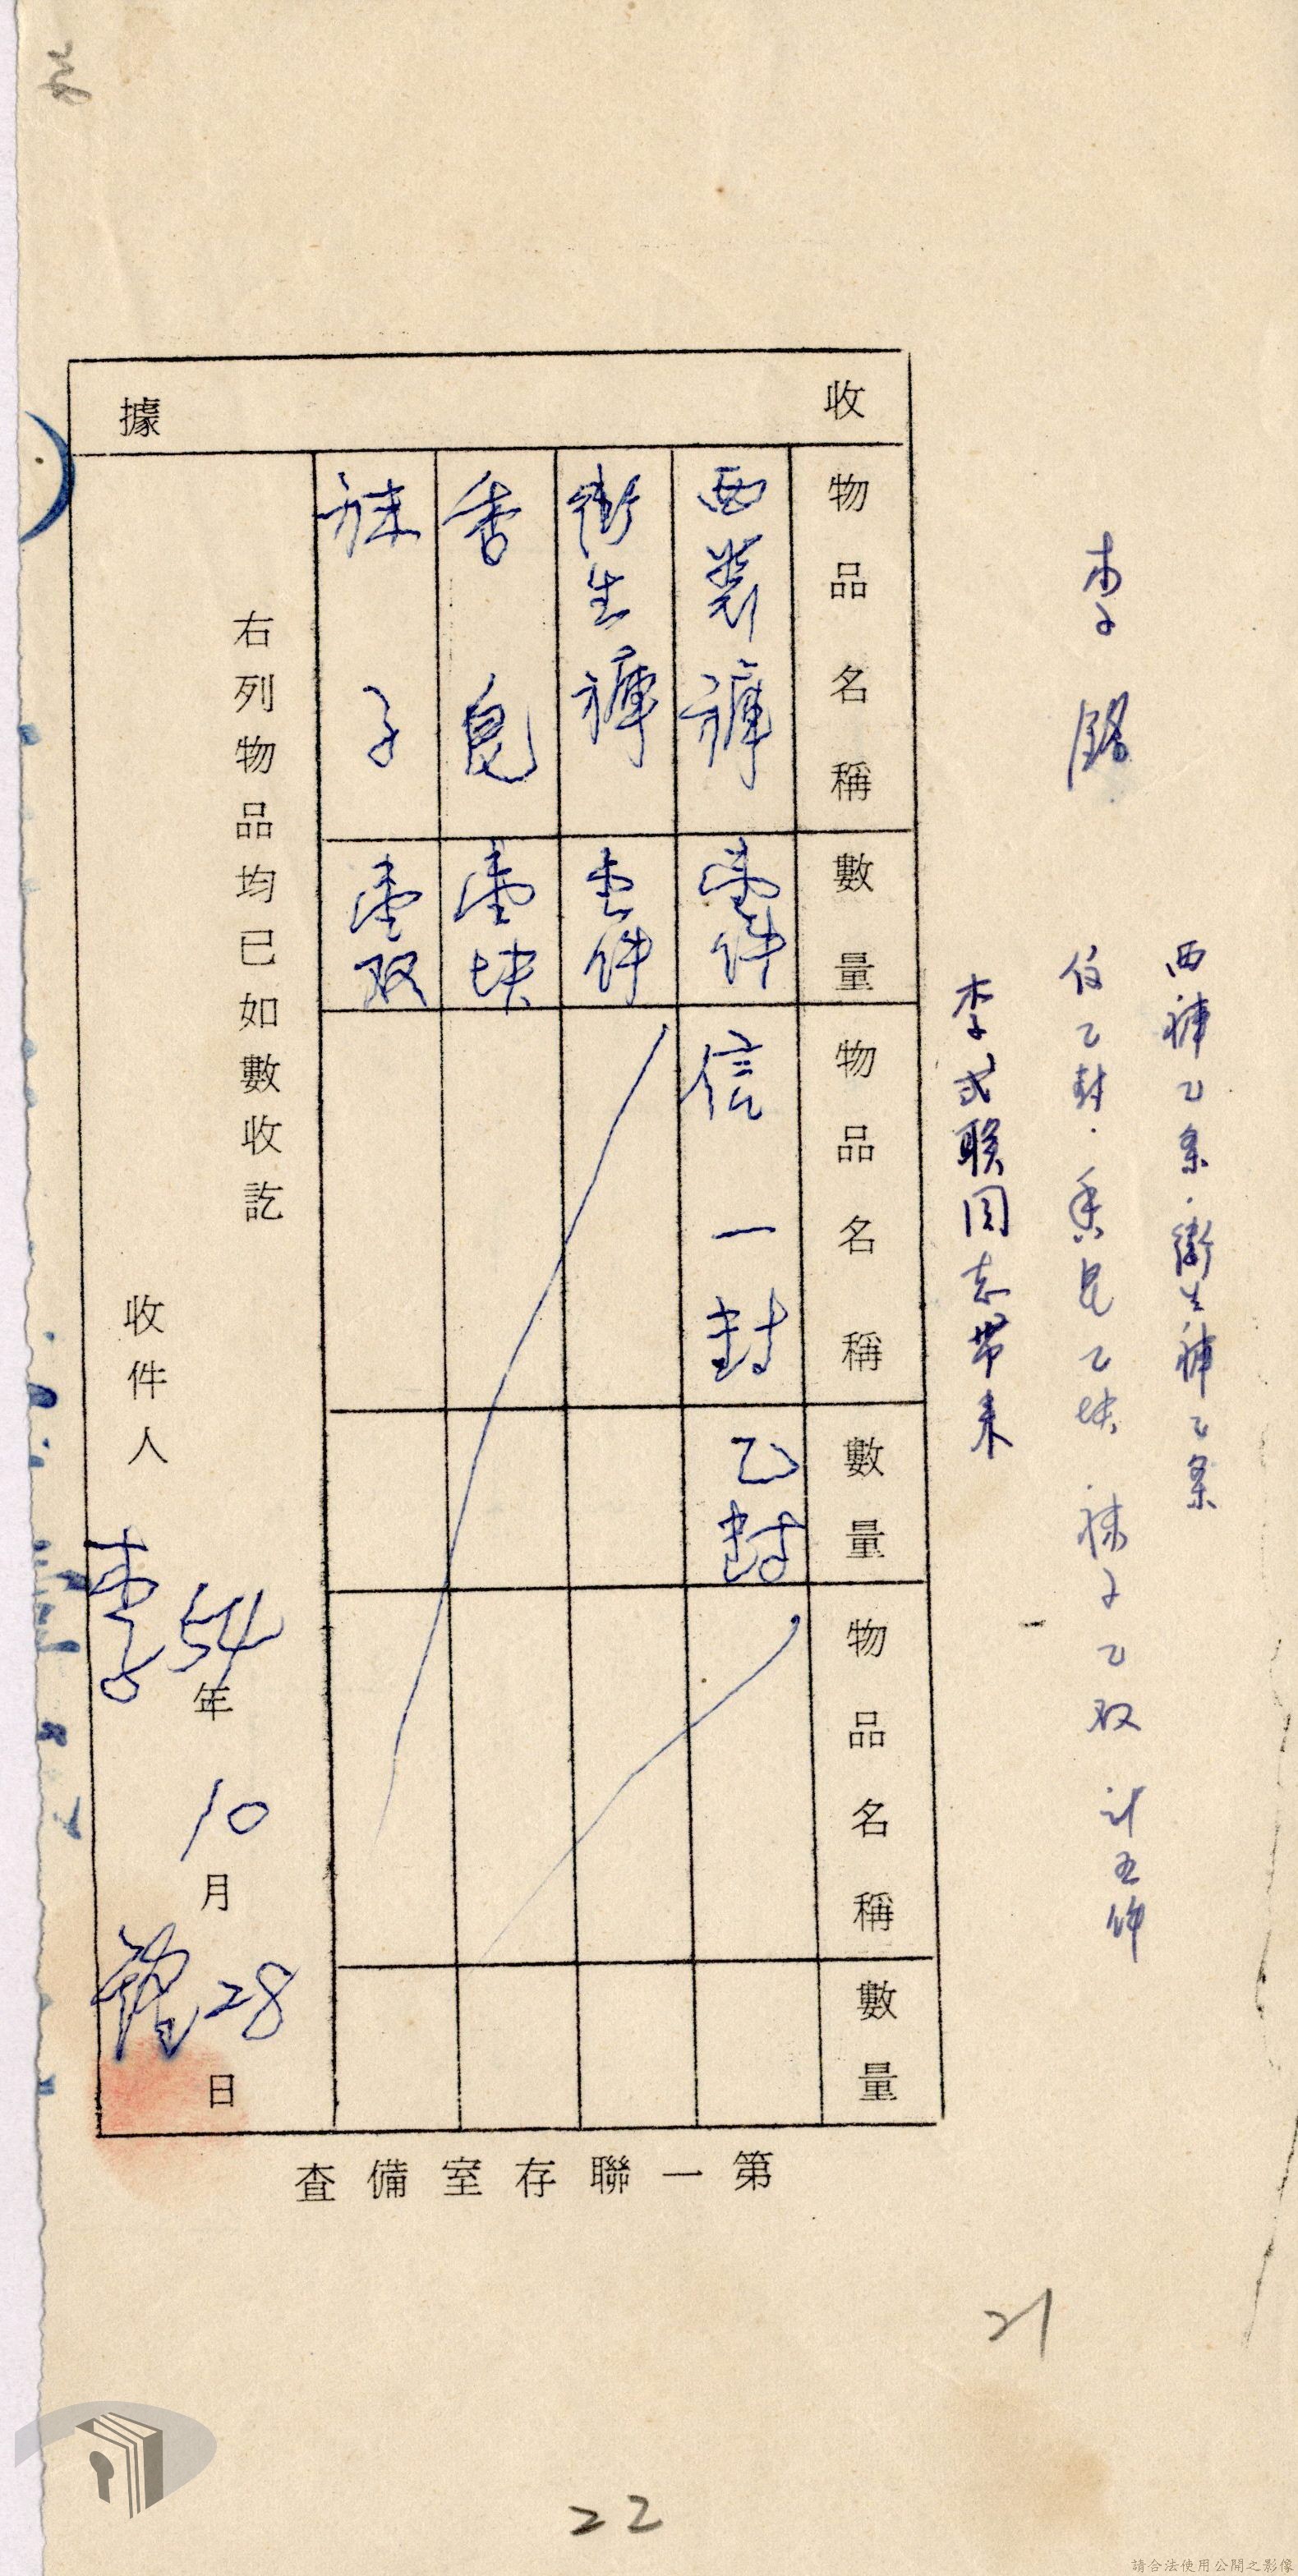 西褲乙条．衛生褲乙条
李
信乙封．香皂乙块．袜子乙双 計五件
李 联同志带来
收據
物品名稱 數量 物品名稱 數量 物品名稱 數量
西裝褲 壹件 信一封 乙封
衛生褲 壹件
香皂 壹块
袜子 壹双
右列物品均已如數收訖
54年10月28日
收件人 李
第一聯存室備査
21
22
請合法使用公開之影像